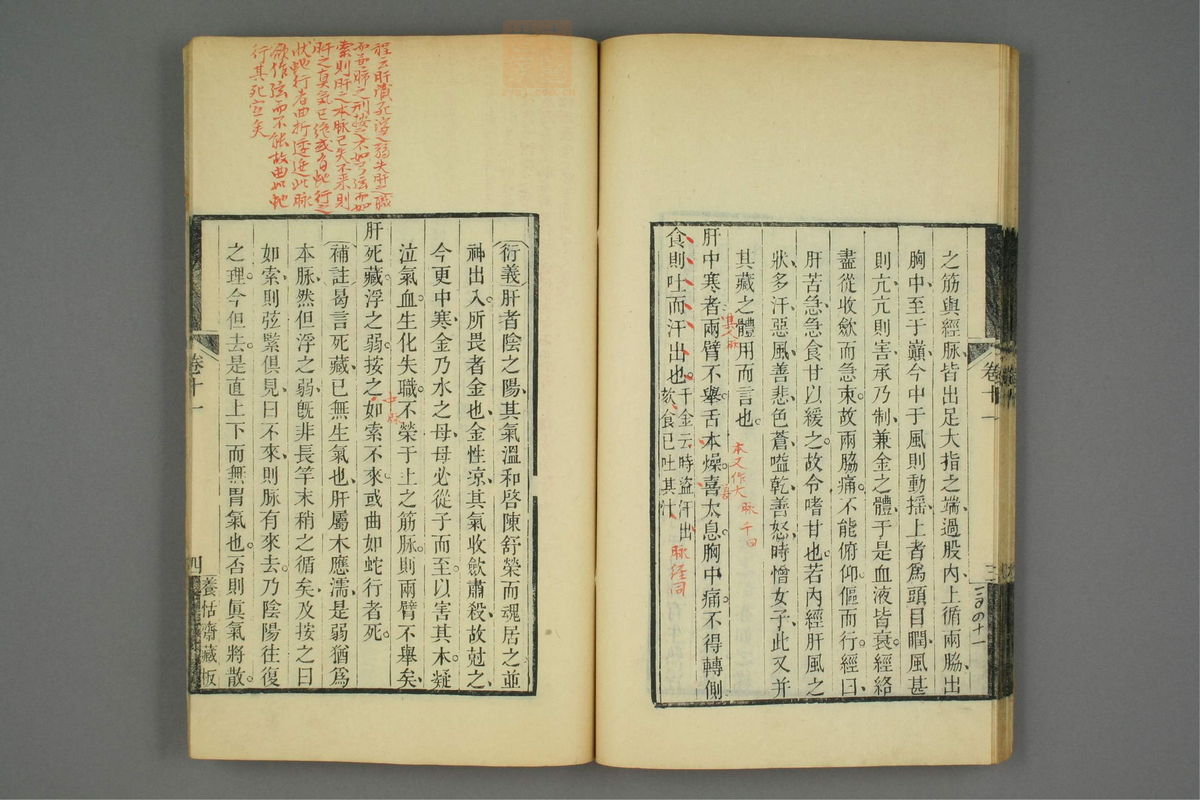 之筋與經脉皆出足大指之端過股內上循兩脇出
胸中至于巔今中于風則動搖上者爲頭目瞤風甚
則亢亢則害承乃制兼金之體于是血液皆衰經絡
盡從收斂而急束故兩脇痛不能俯仰傴而行經曰
肝苦急急食甘以緩之故令嗜甘也若內經肝風之
狀多汗惡風善悲色蒼嗌乾善怒時憎女子此又并
其藏之體用而言也
肝中寒者兩臂不舉舌本燥喜太息胸中痛不得轉側
食則吐而汗出也
千金云時盜汗出
欬食已吐其汁
本又作大
脉千曰
脉經同
卷十一
二ノ四十一
程云肝臟死浮之弱失肝之職
而兼肺之刑按之不如弓弦而如
索則肝之本脉已失不來則
肝之真氣已絕或有蛇行之
狀蛇行者曲折逶迤此脉
欲作弦而不能故曲如蛇
行其死宜矣
衍義肝者陰之陽其氣溫和啓陳舒榮而魂居之並
神出入所畏者金也金性涼其氣收斂肅殺故尅之
今更中寒金乃水之母母必從子而至以害其木凝
泣氣血生化失職不榮于上之筋脉則兩臂不舉矣
肝死藏浮之弱按之如索不來或曲如蛇行者死
補註曷言死藏已無生氣也肝屬木應濡是弱猶爲
本脉然但浮之弱旣非長竿末稍之循矣及按之曰
如索則弦緊俱見曰不來則脉有來去乃陰陽往復
之理今但去是直上下而無胃氣也否則眞氣將散
卷十一
四
養恬齋藏板